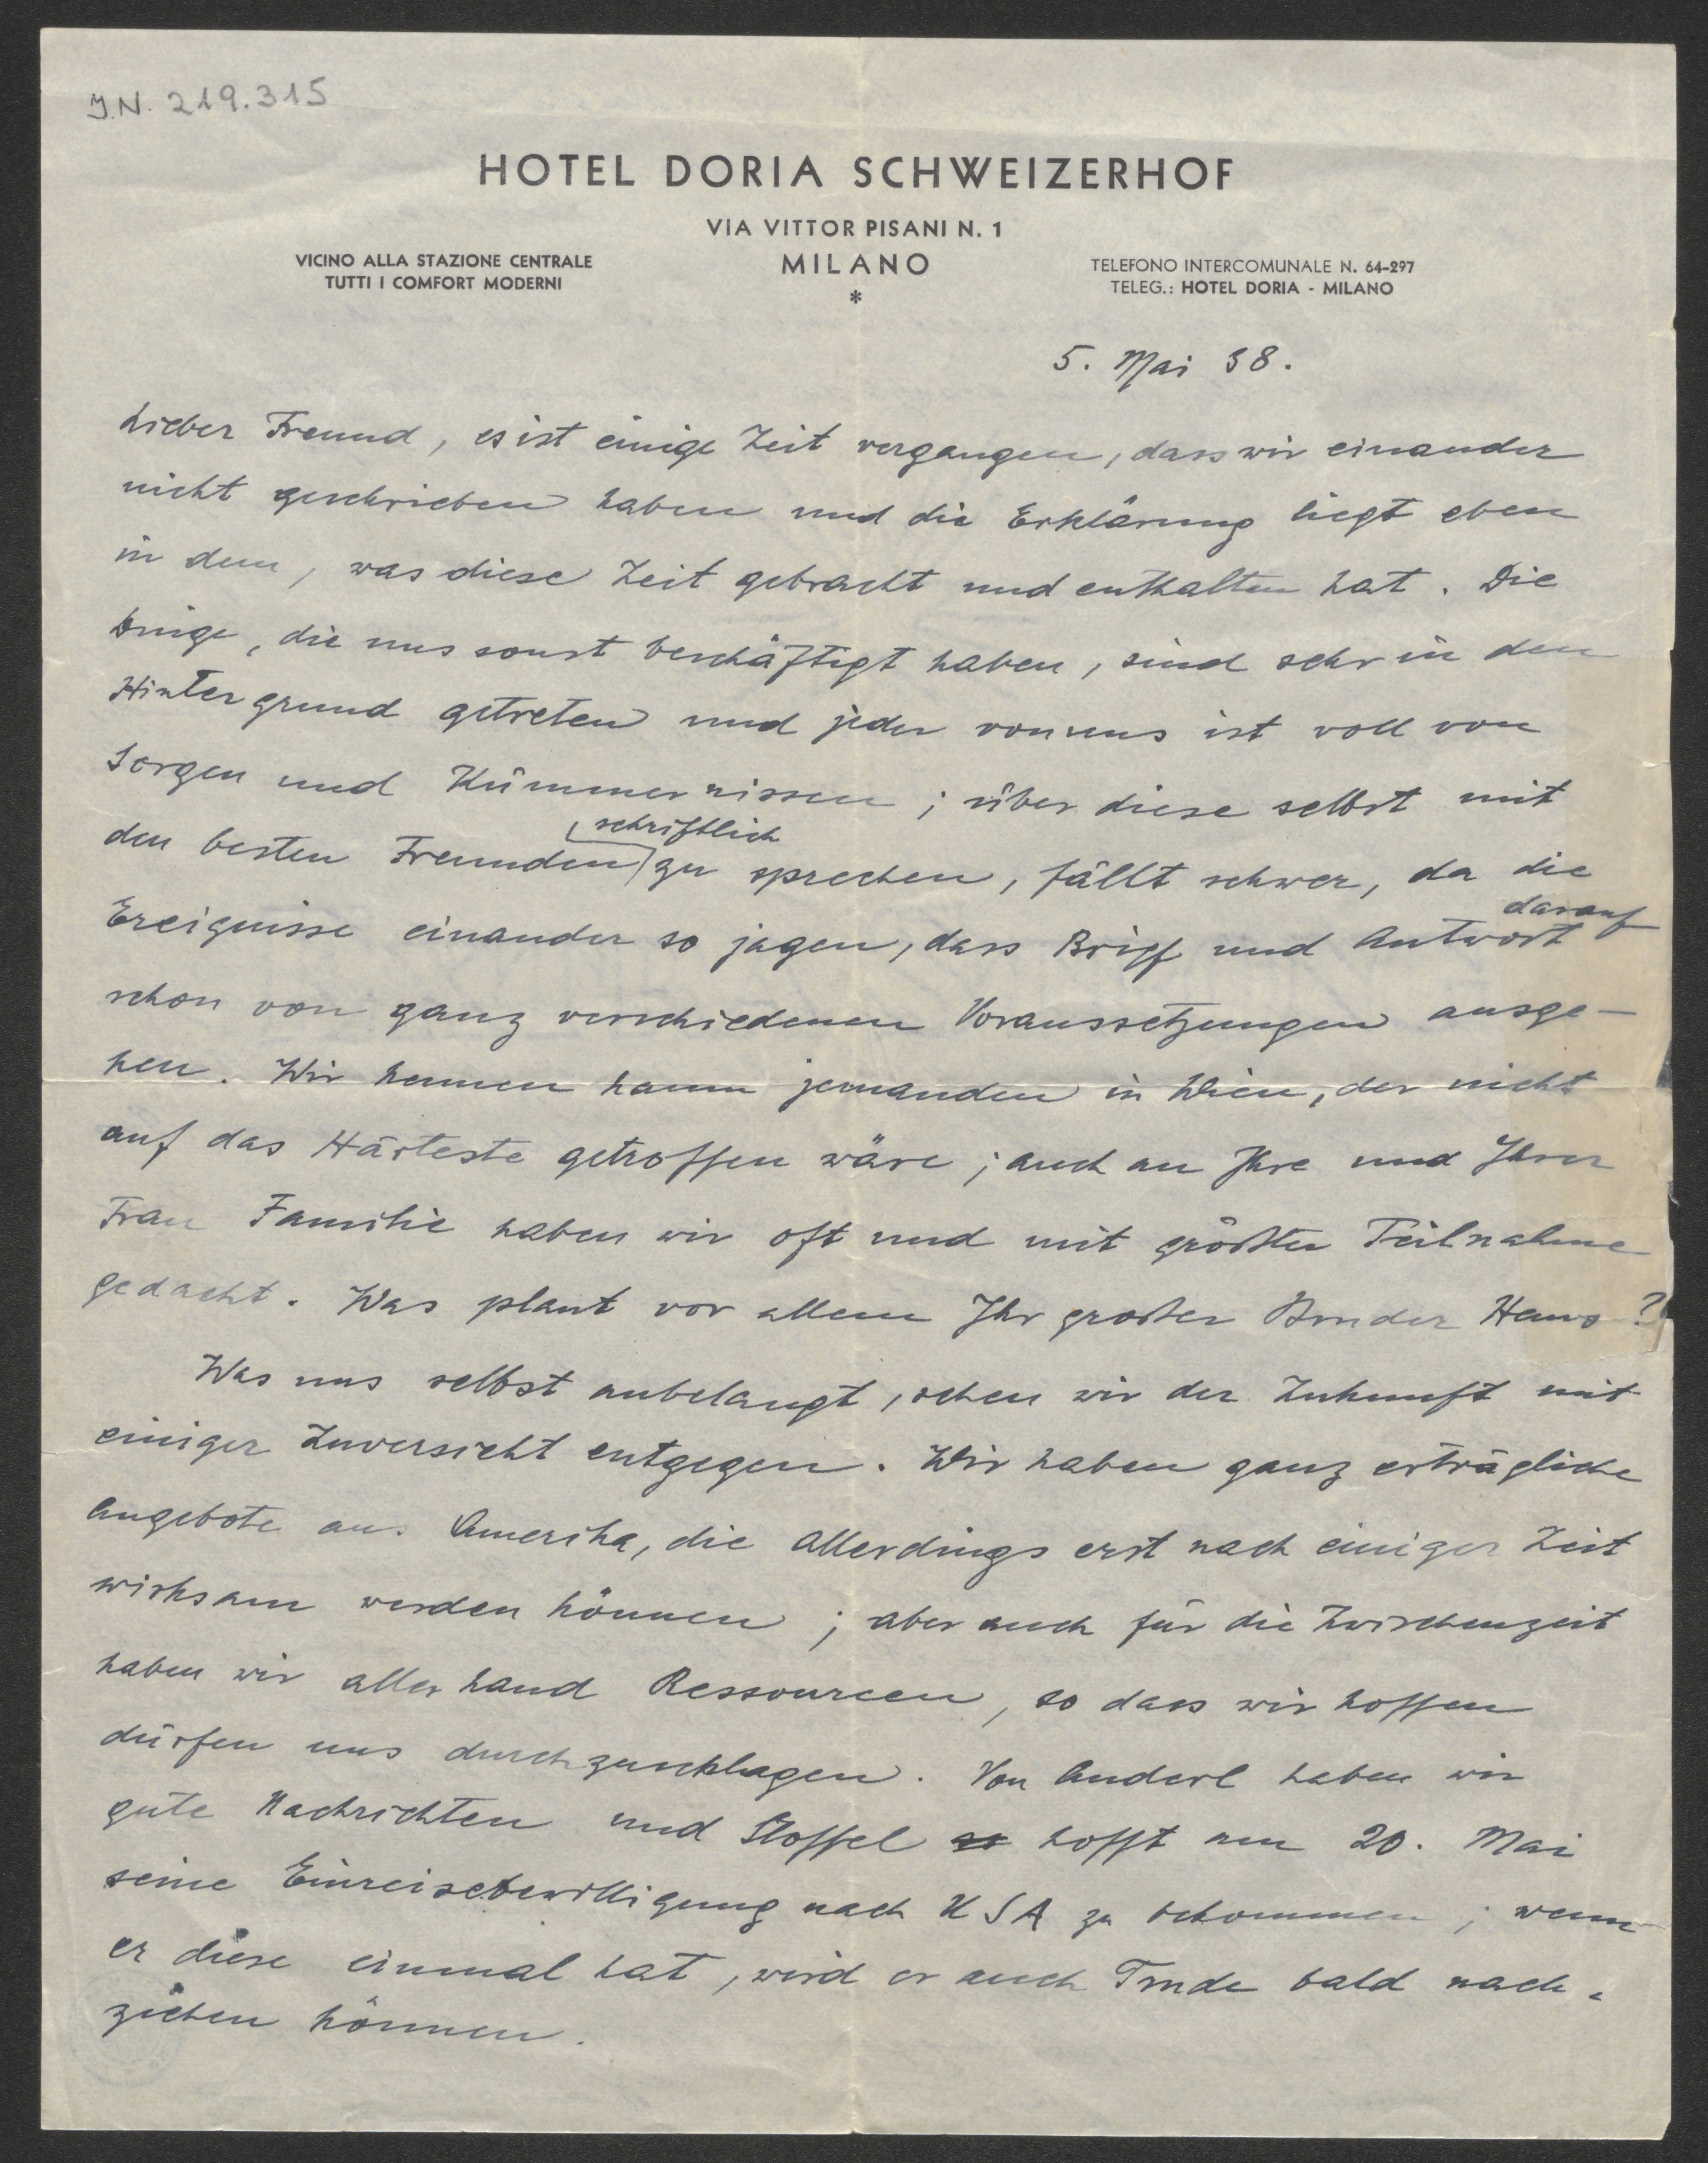 J.N. 219.315
HOTEL DORIA SCHWEIZERHOF
VIA VITTOR PISANI N. 1
VICINO ALLA STAZIONE CENTRALE
TUTTI I COMFORT MODERNI
MILANO
*
TELEFONO INTERCOMUNALE N. 64-297
TELEG.: HOTEL DORIA - MILANO
5. Mai 38.
Lieber Freund, es ist einige Zeit vergangen, dass wir einander
nicht geschrieben haben und die Erklärung liegt eben
in dem, was diese Zeit gebracht und enthalten hat. Die
Dinge, die uns sonst beschäftigt haben, sind sehr in den
Hintergrund getreten und jeder von uns ist voll von
Sorgen und Kümmernissen; über diese selbst mit
den besten Freunden schriftlich zu sprechen, fällt schwer, da die
Ereignisse einander so jagen, dass Brief und Antwort darauf
schon von ganz verschiedenen Voraussetzungen ausge-
hen. Wir kennen kaum jemanden in Wien, der nicht
auf das Härteste getroffen wäre; auch an Ihre und Ihrer
Frau Familie haben wir oft und mit größter Teilnahme
gedacht. Was plant vor allem Ihr großer Bruder Hans?
Was uns selbst anbelangt, sehen wir der Zukunft mit
einiger Zuversicht entgegen. Wir haben ganz erträgliche
Angebote aus Amerika, die allerdings erst nach einiger Zeit
wirksam werden können; aber auch für die Zwischenzeit
haben wir allerhand Ressourcen, so dass wir hoffen
dürfen uns durchzuschlagen. Von Anderl haben wir
gute Nachrichten und Stoffel hofft am 20. Mai
seine Einreisebewilligung nach USA zu bekommen; wenn
er diese einmal hat, wird er auch Trude bald nach-
ziehen können.